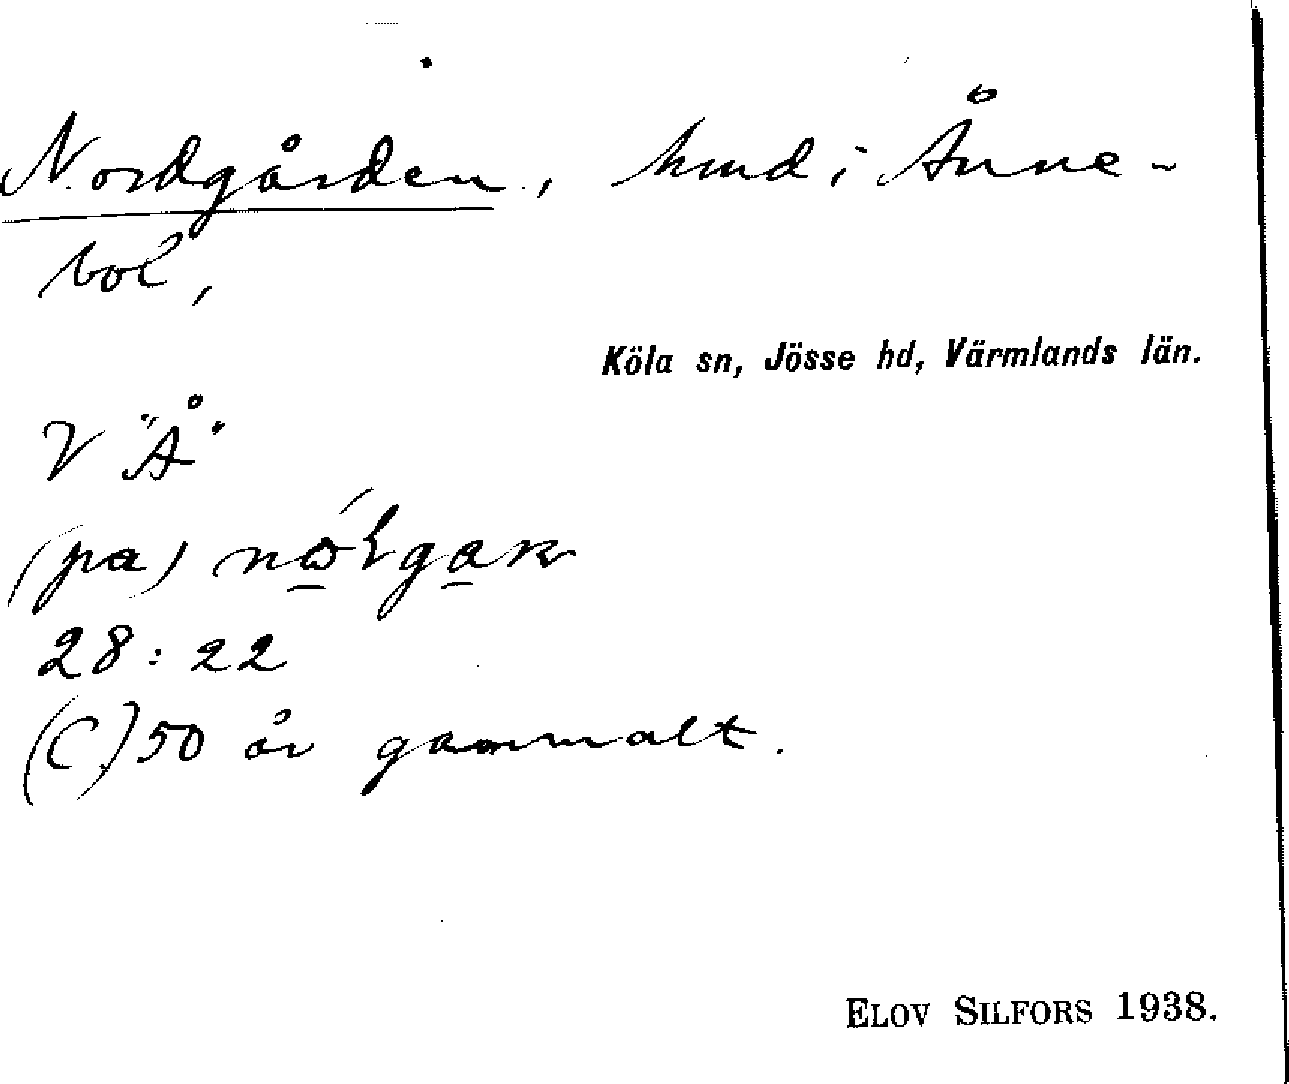 Nordgården, hmd i Änne-
bol,
Köla sn, Jösse hd, Värmlands län.
V "Å"
(pa)
28:22
(C) 50 år gammalt.
ELOV SILFORS 1938.